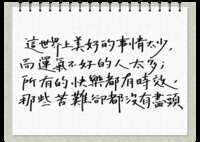 這世界上美好的事情太少，
而運氣不好的人太多；
所有的快樂都有時效、
那些苦難卻都沒有盡頭